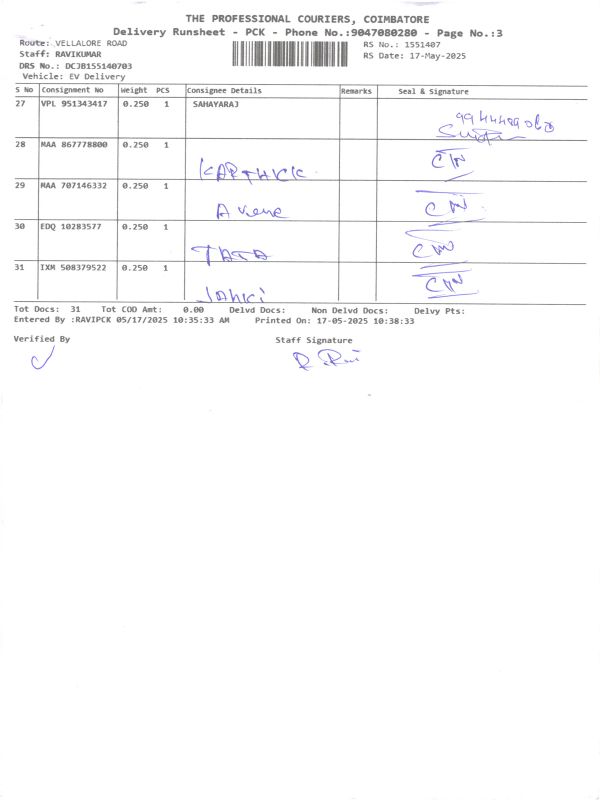 THE PROFESSIONAL COURIERS, COIMBATORE
Delivery Runsheet - PCK - Phone No.:9047080280 - Page No.:3
Route: VELLALORE ROAD RS No.: 1551407
Staff: RAVIKUMAR RS Date: 17-May-2025
DRS No.: DCJB155140703
Vehicle: EV Delivery
S No Consignment No Weight PCS Consignee Details Remarks Seal & Signature
27 VPL 951343417 0.250 1 SAHAYARAJ
28 MAA 867778800 0.250 1
KARTHICK
29 MAA 707146332 0.250 1
30 EDQ 10283577 0.250 1
TATA
31 IXM 508379522 0.250 1
Tot Docs: 31 Tot COD Amt: 0.00 Delvd Docs: Non Delvd Docs: Delvy Pts:
Entered By :RAVIPCK 05/17/2025 10:35:33 AM Printed On: 17-05-2025 10:38:33
Verified By Staff Signature